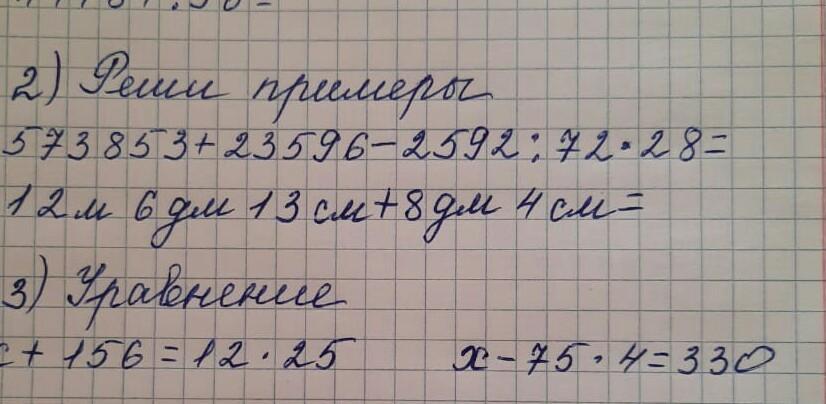 2) Реши примеры
573853+23596-2592:72·28=
12м 6дм 13см+8дм 4см=
3) Уравнение
х+156=12·25 х-75·4=330